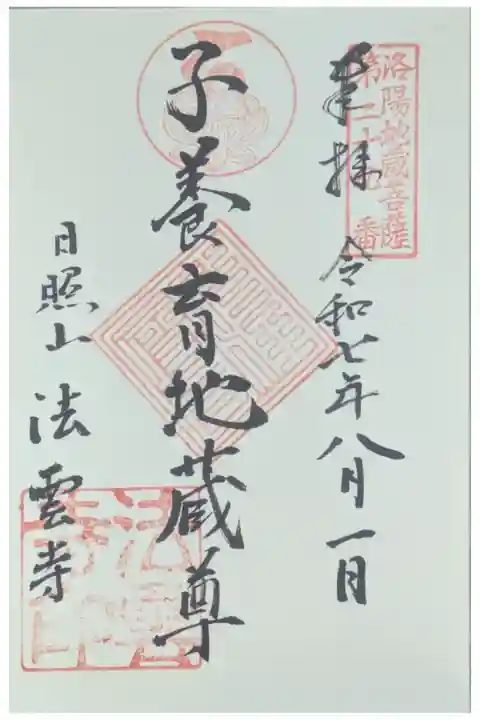 洛陽地蔵菩薩
第二十七番
奉拝 令和七年八月一日
子養育地蔵尊
日照山 法雲寺